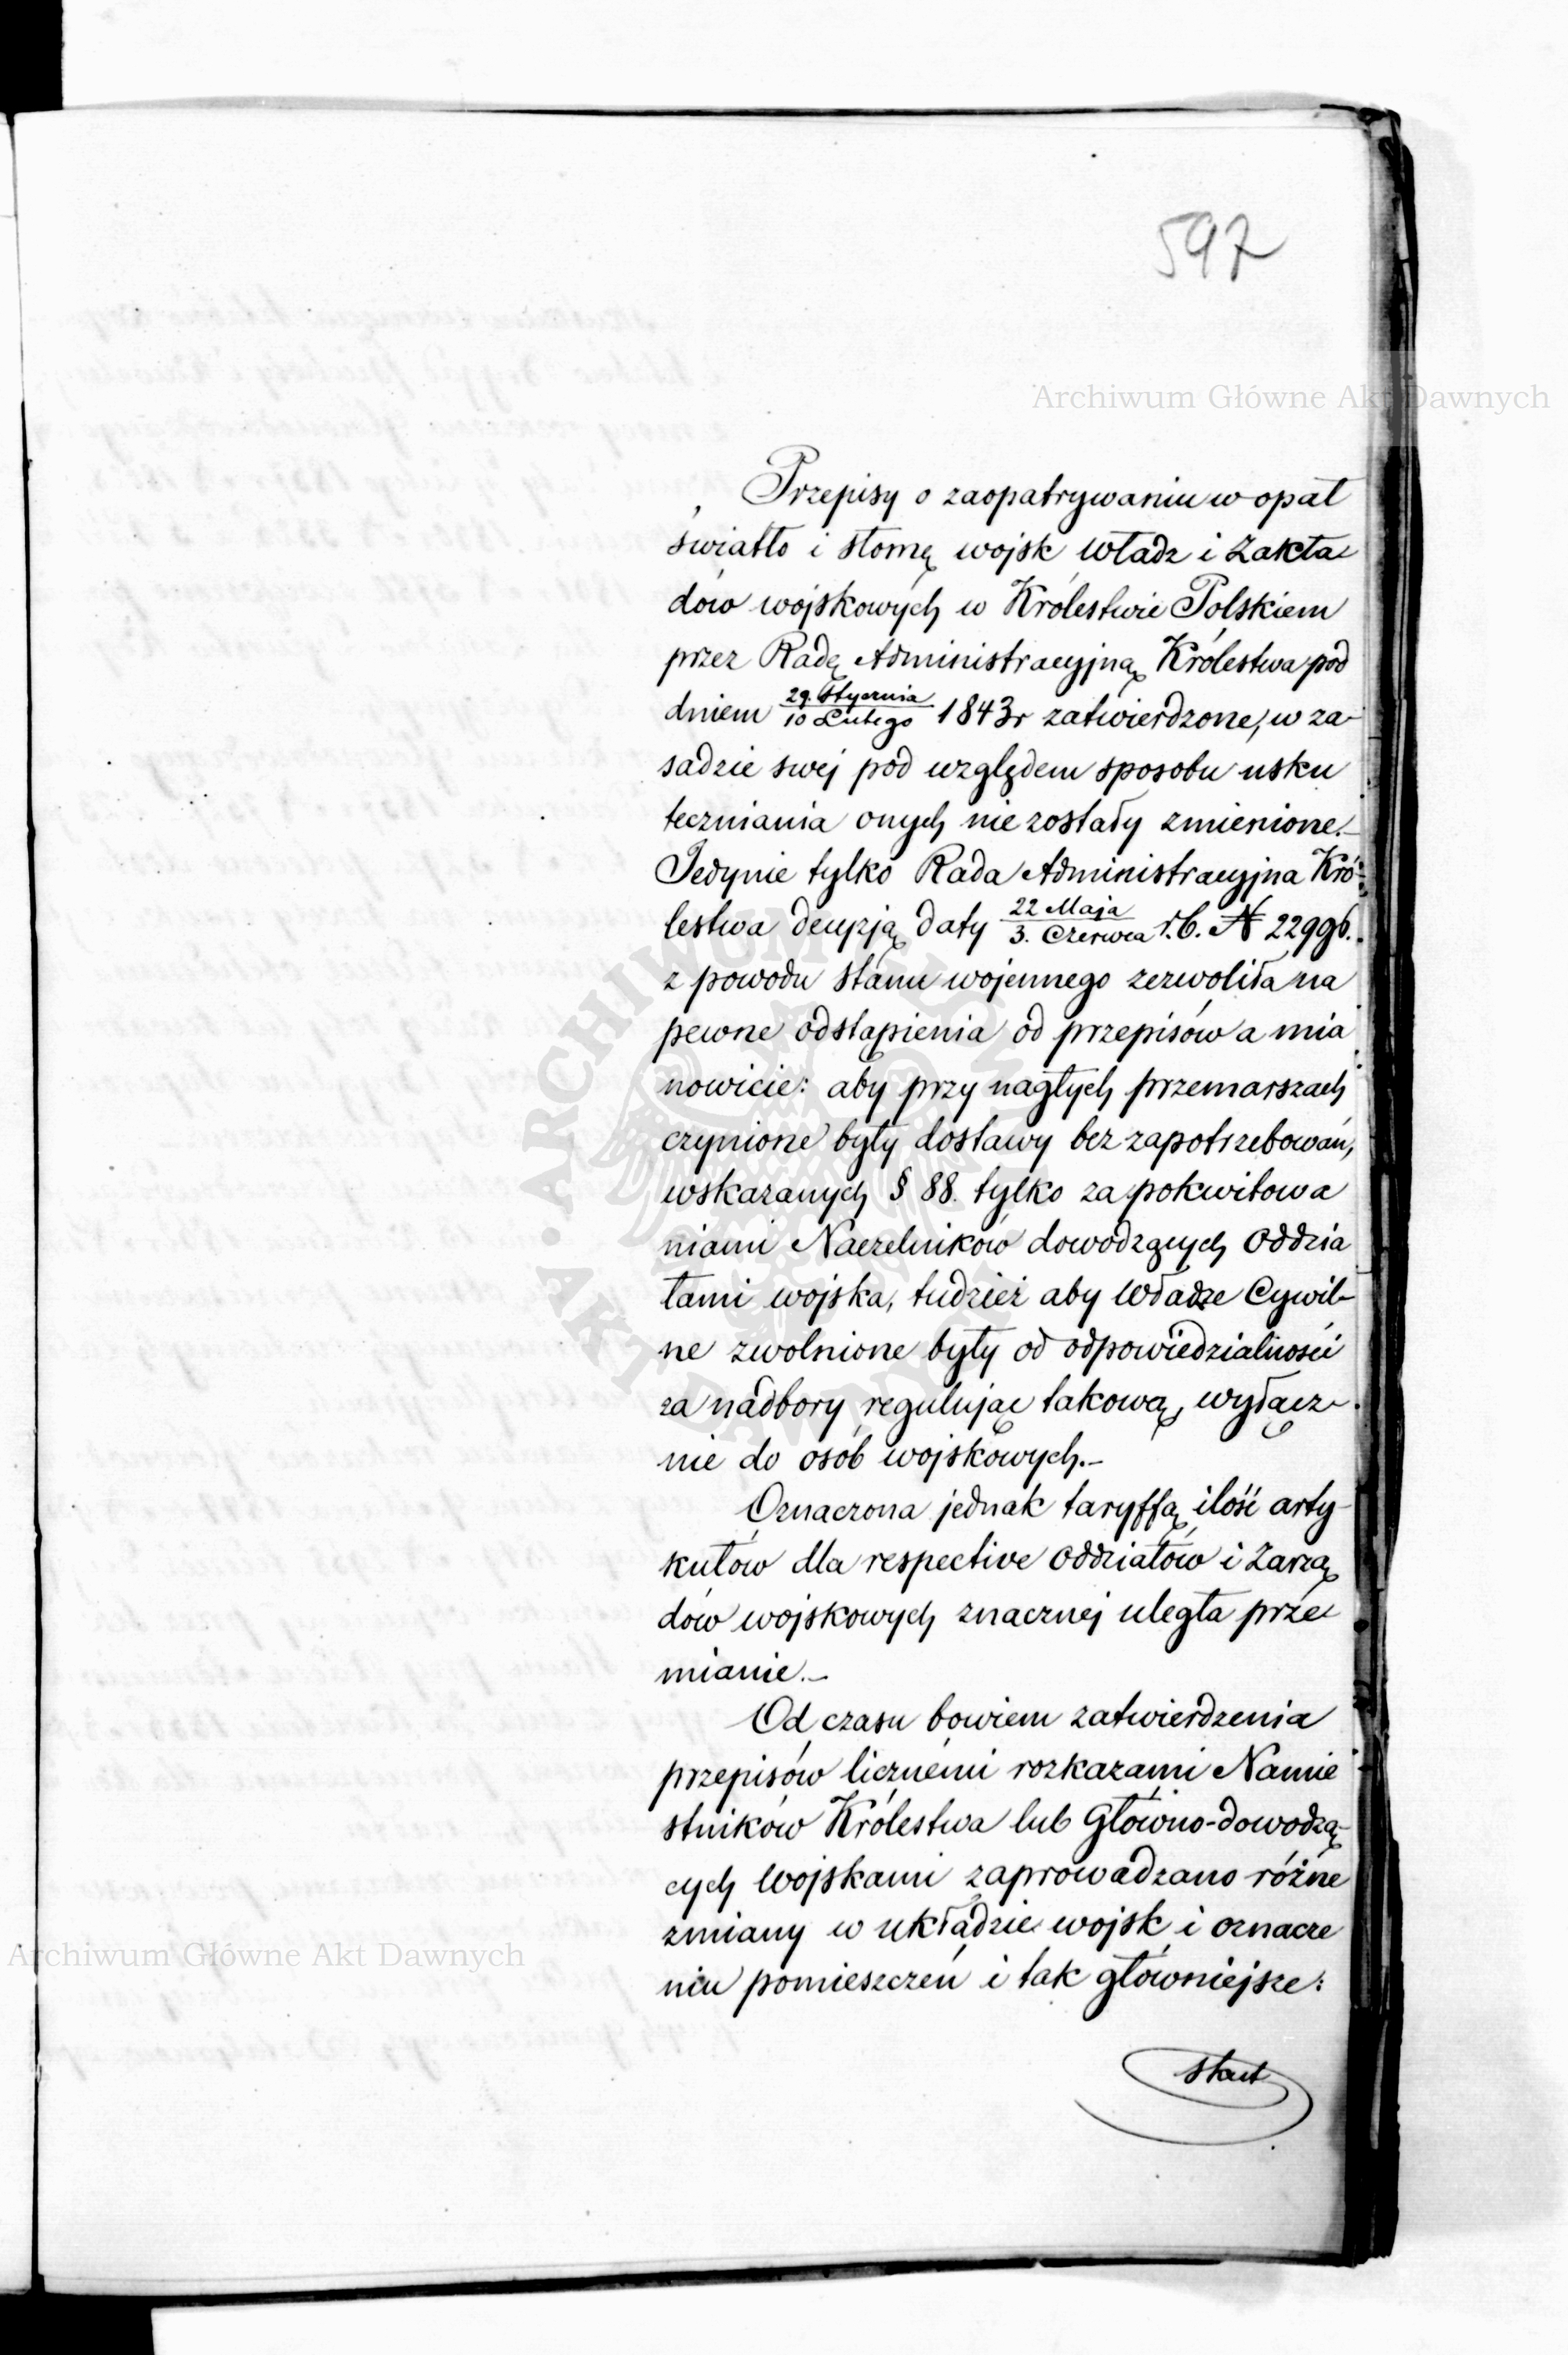 597
Archiwum Główne Akt Dawnych
Przepisy o zaopatrywaniu w opał
światło i słomę wojsk władz i Zakła
dów wojskowych w Królestwie Polskiem
przez Radę Administracyjną Królestwa pod
dniem 29. Stycznia/10 Lutego 1843r zatwierdzone, w za-
sadzie swej pod względem sposobu usku
teczniania onych nie zostały zmienione.-
Jedynie tylko Rada Administracyjna Kró-
lestwa decyzją daty 22 Maja/3. Czerwca r.b. N 22996.
z powodu stanu wojennego zezwoliła na
pewne odstąpienia od przepisów a mia
nowicie: aby przy nagłych przemarszach
czynione były dostawy bez zapotrzebowań,
wskazanych § 88. tylko za pokwitowa
niami Naczelników dowodzących Oddzia
łami wojska, tudzież aby Władze Cywil-
ne zwolnione były od odpowiedzialności
za nadbory regulując takową, wyłącz-
nie do osób wojskowych.-
Oznaczona jednak taryffą ilość arty-
kułów dla respective Oddziałów i Zarzą
dów wojskowych znacznej uległa prze
mianie.-
Od czasu bowiem zatwierdzenia
przepisów licznemi rozkazami Namie
stników Królestwa lub Główno-dowodzą-
cych Wojskami zaprowadzano różne
zmiany w układzie wojsk i oznacze
niu pomieszczeń i tak główniejsze:
Archiwum Główne Akt Dawnych
ARCHIWUM GŁÓWNE AKT DAWNYCH